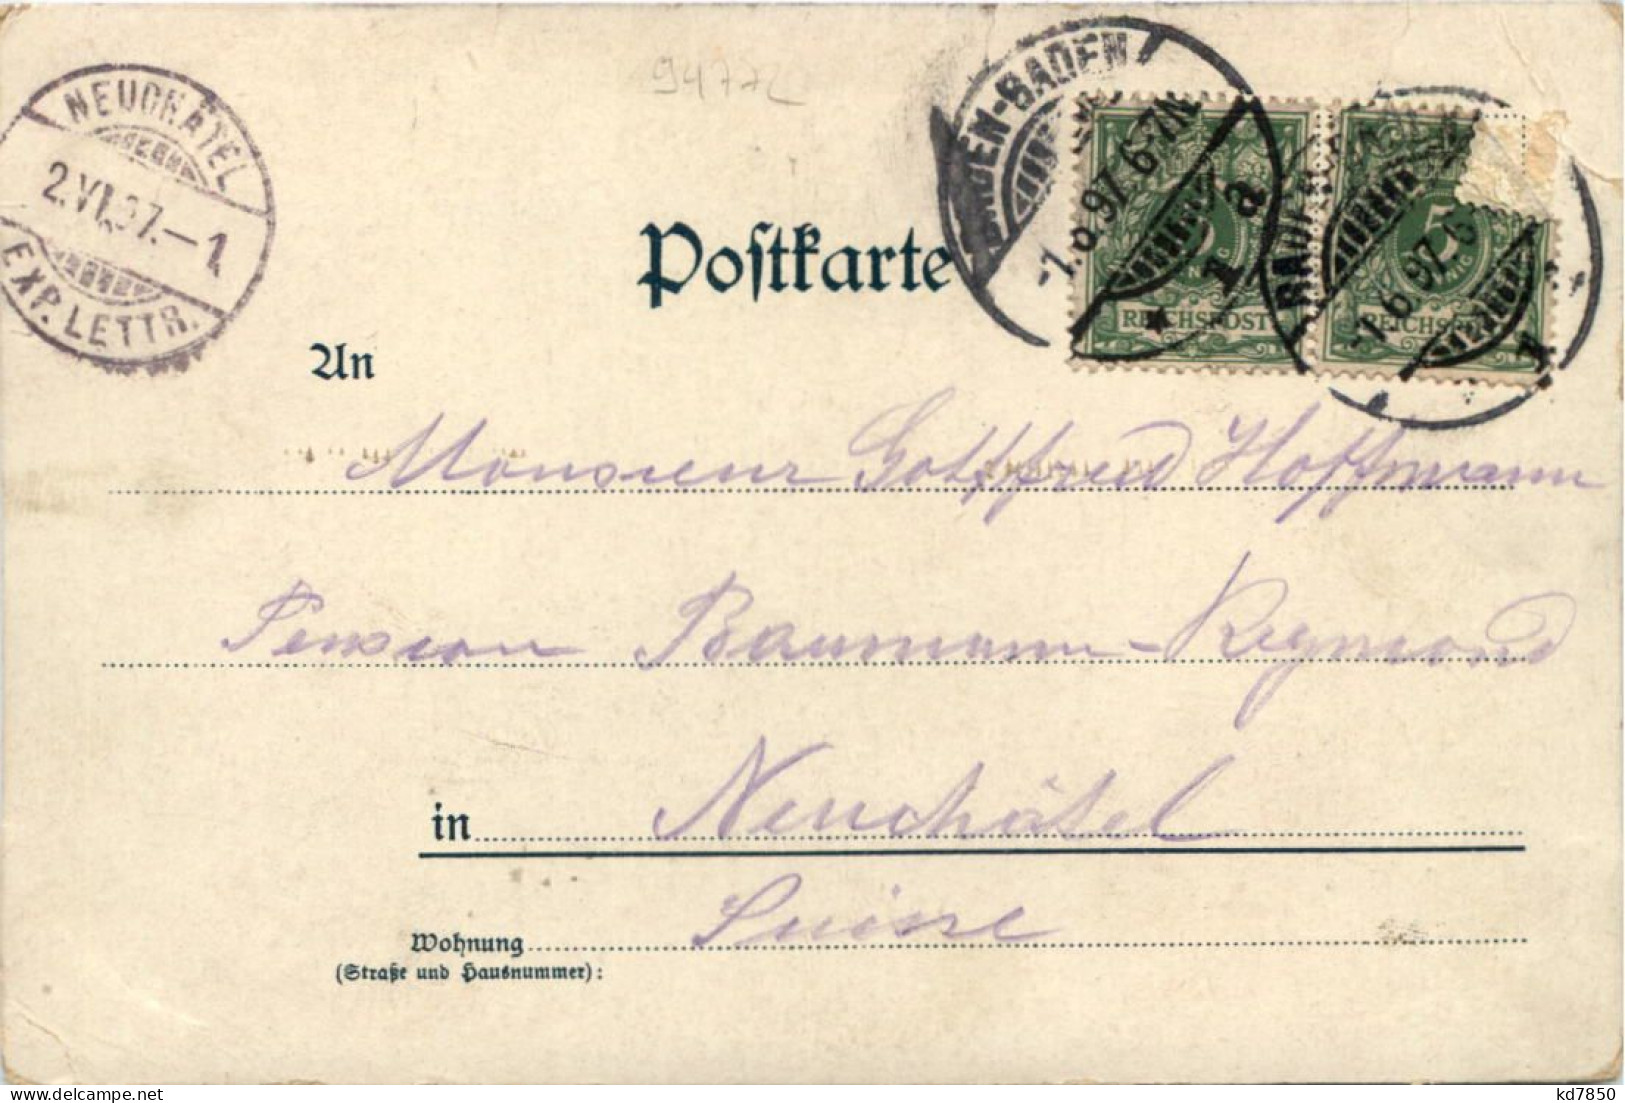 94772
BADEN-BADEN
-1.6.97. 6-7N.
1 a
-1.6.97. 6
1
5
REICHSPOST
REICHSPOST
NEUCHÂTEL
2.VI.97.-1.
EXP. LETTR.
Postkarte
An
Monsieur Gottfried Hoffmann
Pension Baumann-Reymond
in Neuchâtel
Suisse
Wohnung
(Straße und Hausnummer):
kd7850